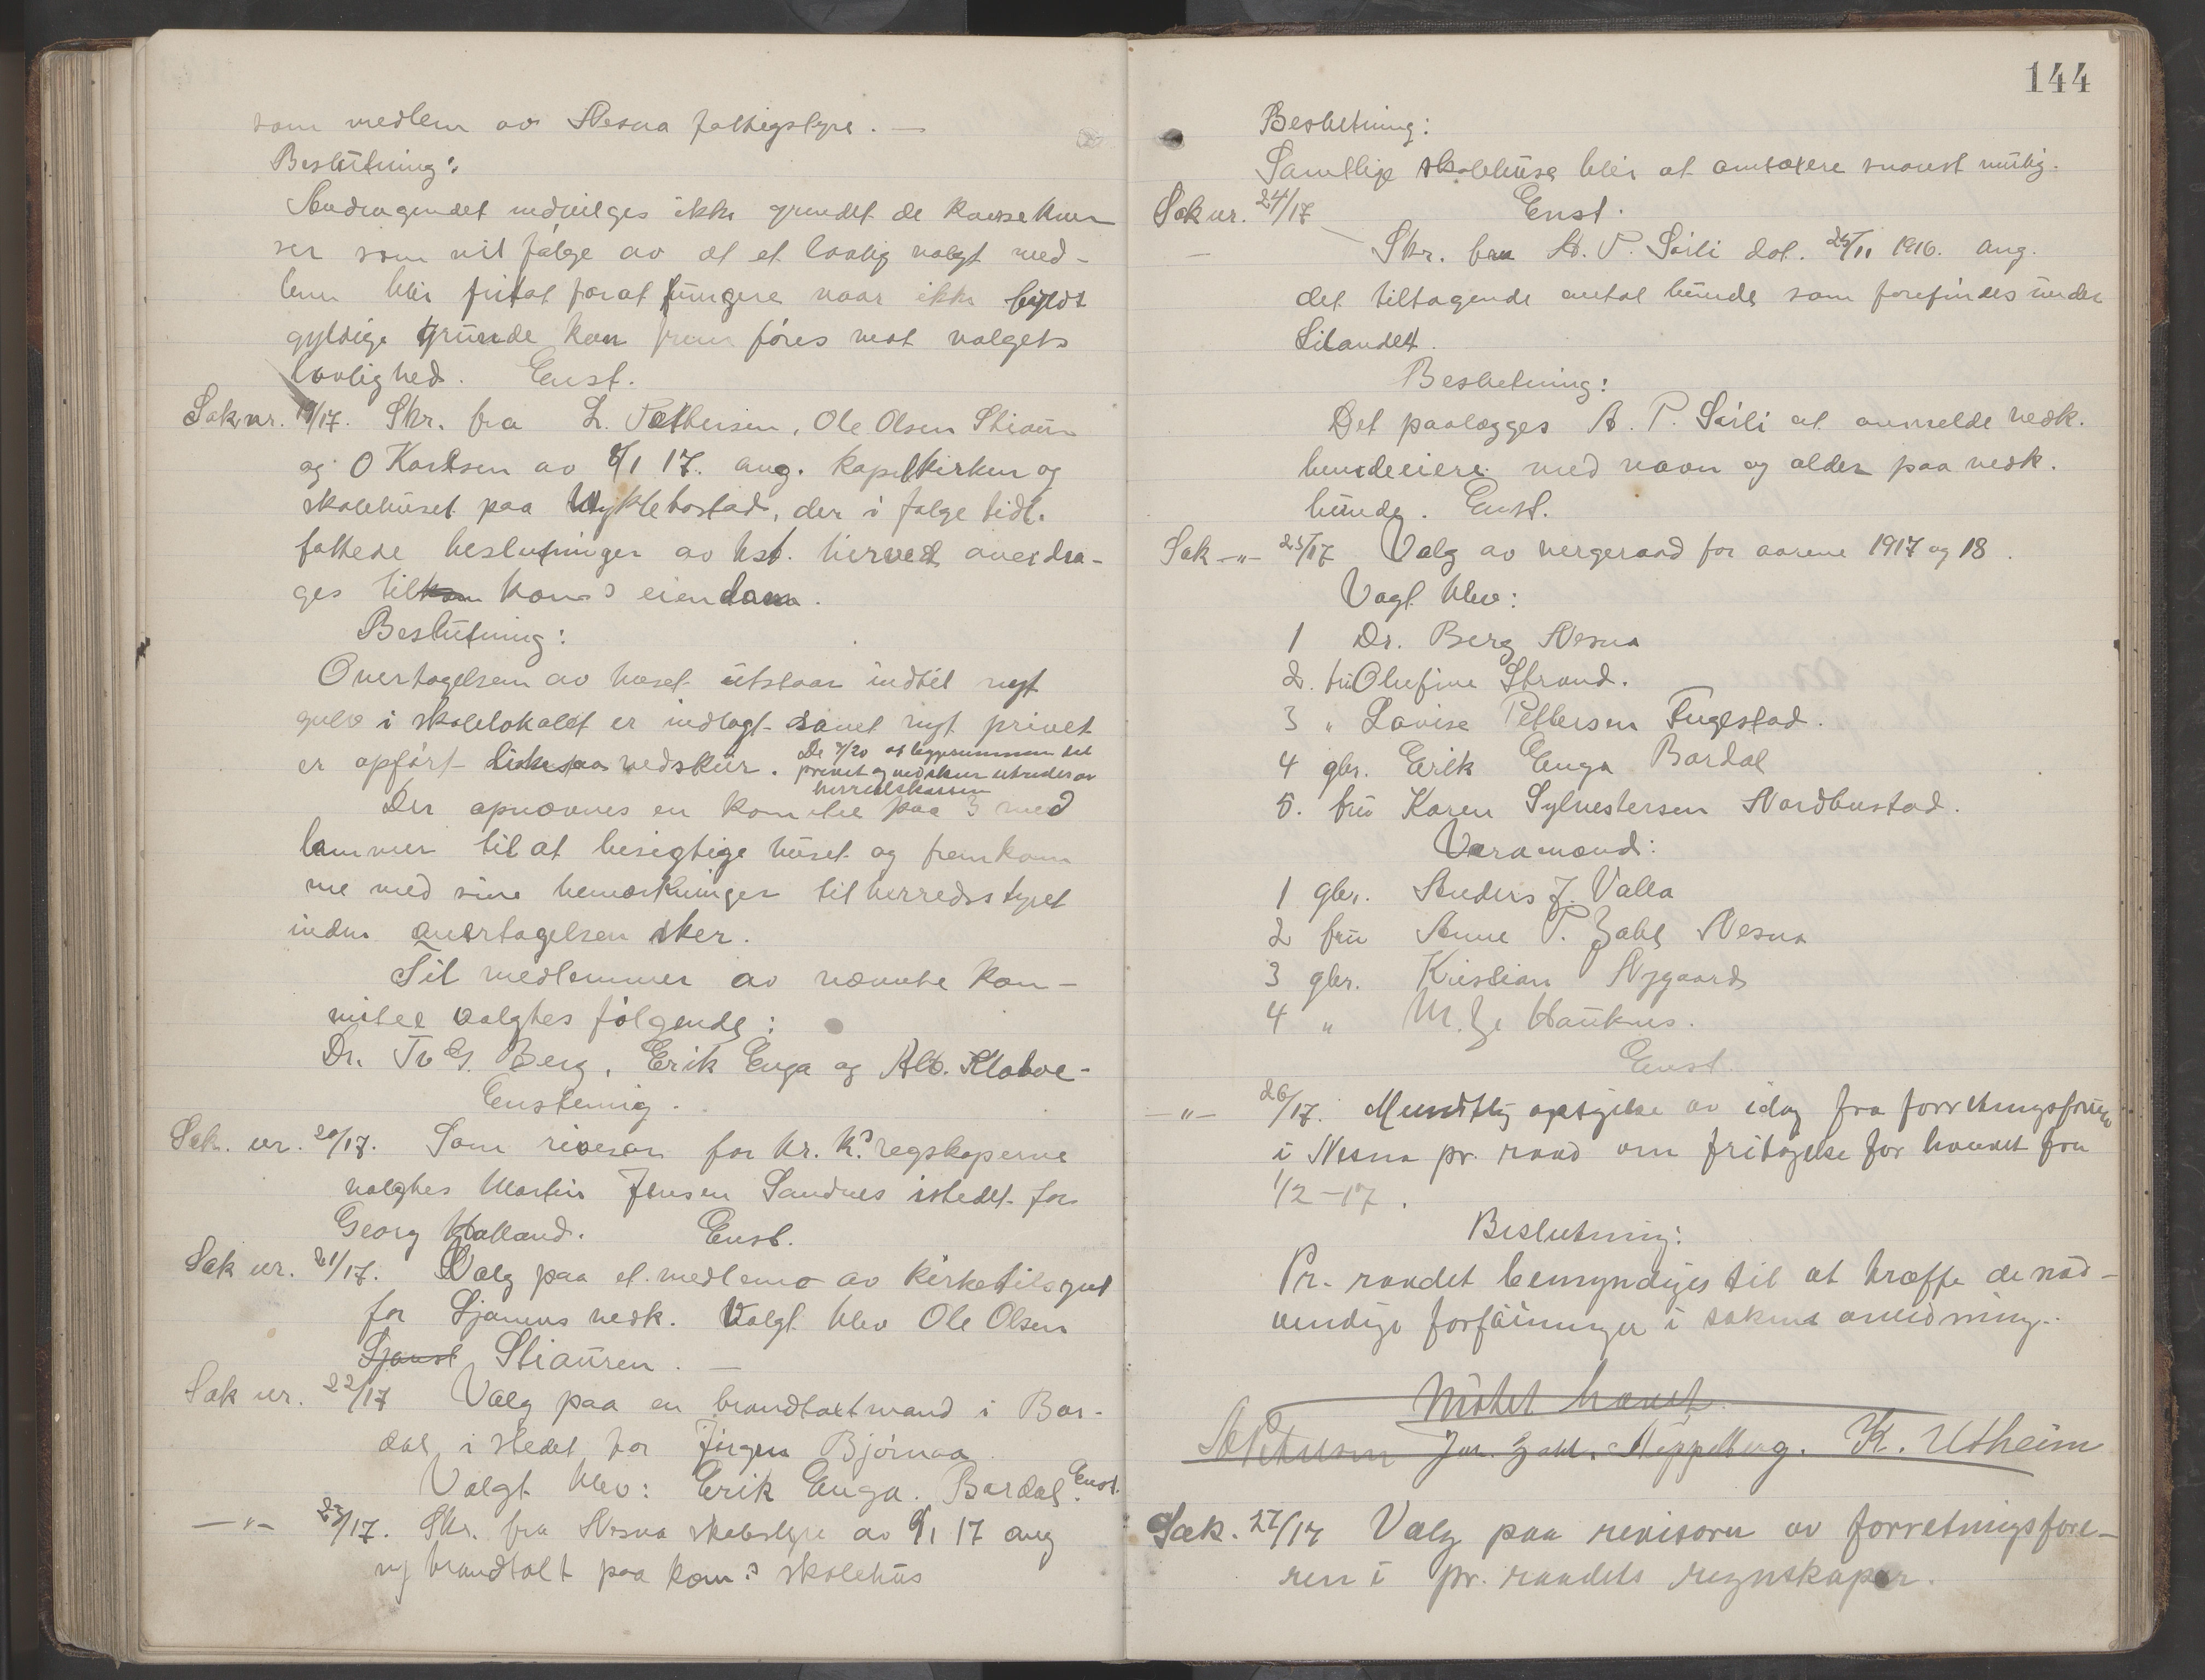 som medlem av Nesna fattigstyre. —
Beslutning:
Andragendet indvilges ikke grundet de konsekven
ser som vil følge av at et lovlig valgt med-
lem blir fritat for at fungere naar ikke fuldt
gyldige grunde kan frem føres mot valgets
lovlighed. Enst.
Sak nr. 19/17. Skr. fra L. Pettersen, Ole Olsen Stiauren
og O Karlsen av 8/1 17. ang. kapelkirken og
skolehuset paa Hugklebostad, der i følge tidl.
fattede beslutninger av hst. herved overdra-
ges til kom kom's eiendom.
Beslutning:
Overtagelsen av huset utstaar indtil nyt
gulv i skolelokalet er indlagt samt nyt privet
er opført likesaa vedskur. De 7/20 af byggesummen det
privet og vedskur utredes av
herredskassen
Der opnævnes en komite paa 3 med
lemmer til at besigtige huset og fremkom
me med sine bemærkninger til herredsstyret
inden overtagelsen sker.
Til medlemmer av nævnte kom-
mitee valgtes følgende:
Dr. Tv G. Berg, Erik Enga og Alb. Klaboe-
Enstemig.
Sak. nr. 20/17. Som revisor for hr. k's regskaperne
valgtes Martin Jensen Sandnes istedet for
Georg Halland. Enst.
Sak nr. 21/17. Valg paa et medlem av kirketilsynet
for Sjonens vedk. Valgt blev Ole Olsen
Sjonst Stiauren. —
Sak nr. 22/17 Valg paa en brandtakstmand i Bar-
dal i stedet for Jørgen Bjørnaa
Valgt blev: Erik Enga. Bardal. Enst.
— " — 23/17. Skr. fra Nesna skolestyre av 9/1 17 ang
ny brandtakt paa kom's skolehus
144
Beslutning:
Samtlige skolehuse blir at omtaxere snarest mulig.
Sak nr. 24/17 Enst.
— Skr. fra A. P. Sørli dat. 25/11 1916. ang.
det tiltagende antal hunde som forefindes under
Litandet.
Beslutning:
Det paalægges A. P. Sørli at anmelde vedk.
hundeeiere med navn og alder paa vedk.
hunde. Enst.
Sak — " — 25/17 Valg av vergeraad for aarene 1917 og 18.
Vagt blev:
1 Dr. Berg Nesna
2. fru Olufine Strand.
3 " Lovise Pettersen Fugestad.
4 gbr. Erik Enga Bardal
5. fru Karen Sylvestersen Nordbustad.
Varamænd:
1 gbr. Anders J. Valla
2 fru Anne P. Zahl Nesna
3 gbr. Kristian Nygaard
4 " M. Ze Hauknes.
Enst.
— " — 26/17. Mundtlig opsigelse av idag fra forretningsføreren
i Nesna pr. raad om fritagelse for hvervet fra
1/2 - 17.
Beslutning:
Pr. raadet bemyndiges til at træffe de nød-
vendige forføininger i sakens anledning.
Møtet hævet.
A Petersen Joh. Zahl. Neppelberg. K. Utheim
Sak. 27/17 Valg paa revisorer av forretningsføre-
ren i pr. raadets regnskaper.